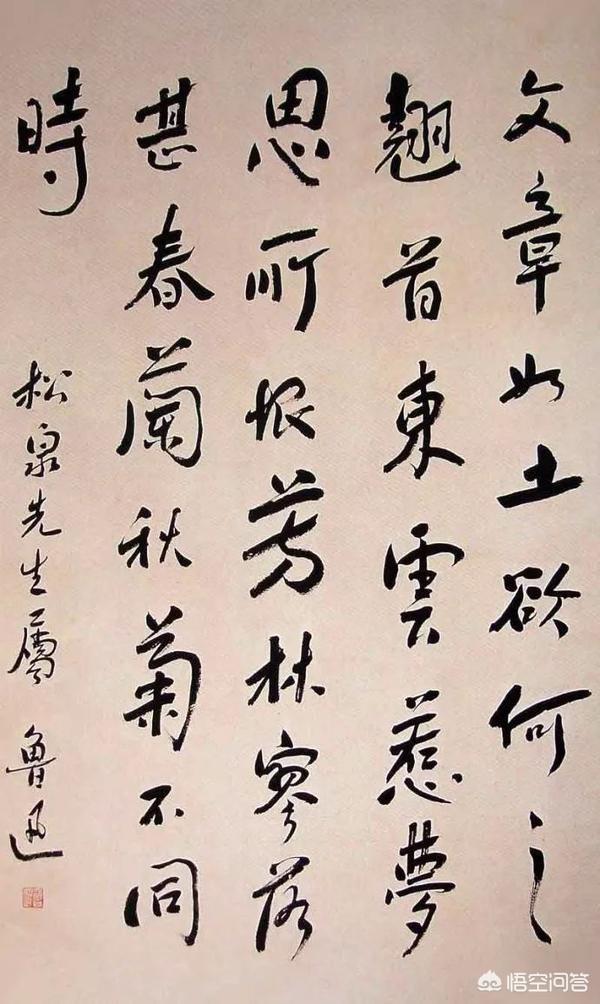 文章如土欲何之
翹首東雲惹夢
思所恨芳林寥落
甚春蘭秋菊不同
時
松泉先生屬 魯迅
悟空问答